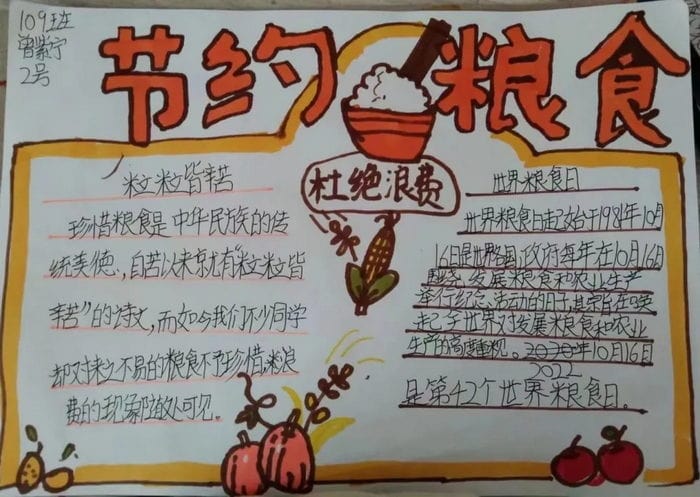 109班
曾紫宁
2号
节约粮食
杜绝浪费
粒粒皆辛苦
珍惜粮食是中华民族的传
统美德.,自苦以来就有“粒粒皆
辛苦”的诗文,而如今我们不少同学
却对来之不易的粮食不予珍惜.粮浪
费的现象随处可见。
世界粮食日
世界粮食日起始于1981年10月
16日是世界各国政府每年在10月16日
围绕发展粮食和农业生产
举行纪念活动的日子,其宗旨在唤
起全世界对发展粮食和农业
生产的高度重视。2020年10月16日
2022
是第42个世界粮食日。